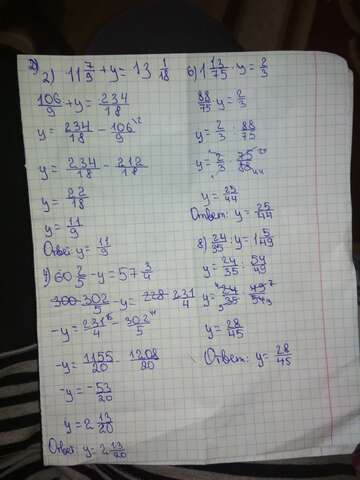 2)
2) 11 7/9 + y = 13 1/18
106/9 + y = 234/18
y = 234/18 - 106/9 \2
y = 234/18 - 212/18
y = 22/18
y = 11/9
Ответ: y = 11/9
4) 60 2/5 - y = 57 3/4
300 302/5 - y = 228 231/4
-y = 231/4 \5 - 302/5 \4
-y = 1155/20 - 1208/20
-y = -53/20
y = 2 13/20
Ответ: y = 2 13/20
6) 1 13/75 · y = 2/3
88/75 y = 2/3
y = 2/3 : 88/75
y = 2/3 · 75/88 25 44
y = 25/44
Ответ: y = 25/44
8) 24/35 : y = 1 5/49
y = 24/35 : 54/49
y = 24/35 · 49/54 4 5 7 9
y = 28/45
Ответ: y = 28/45